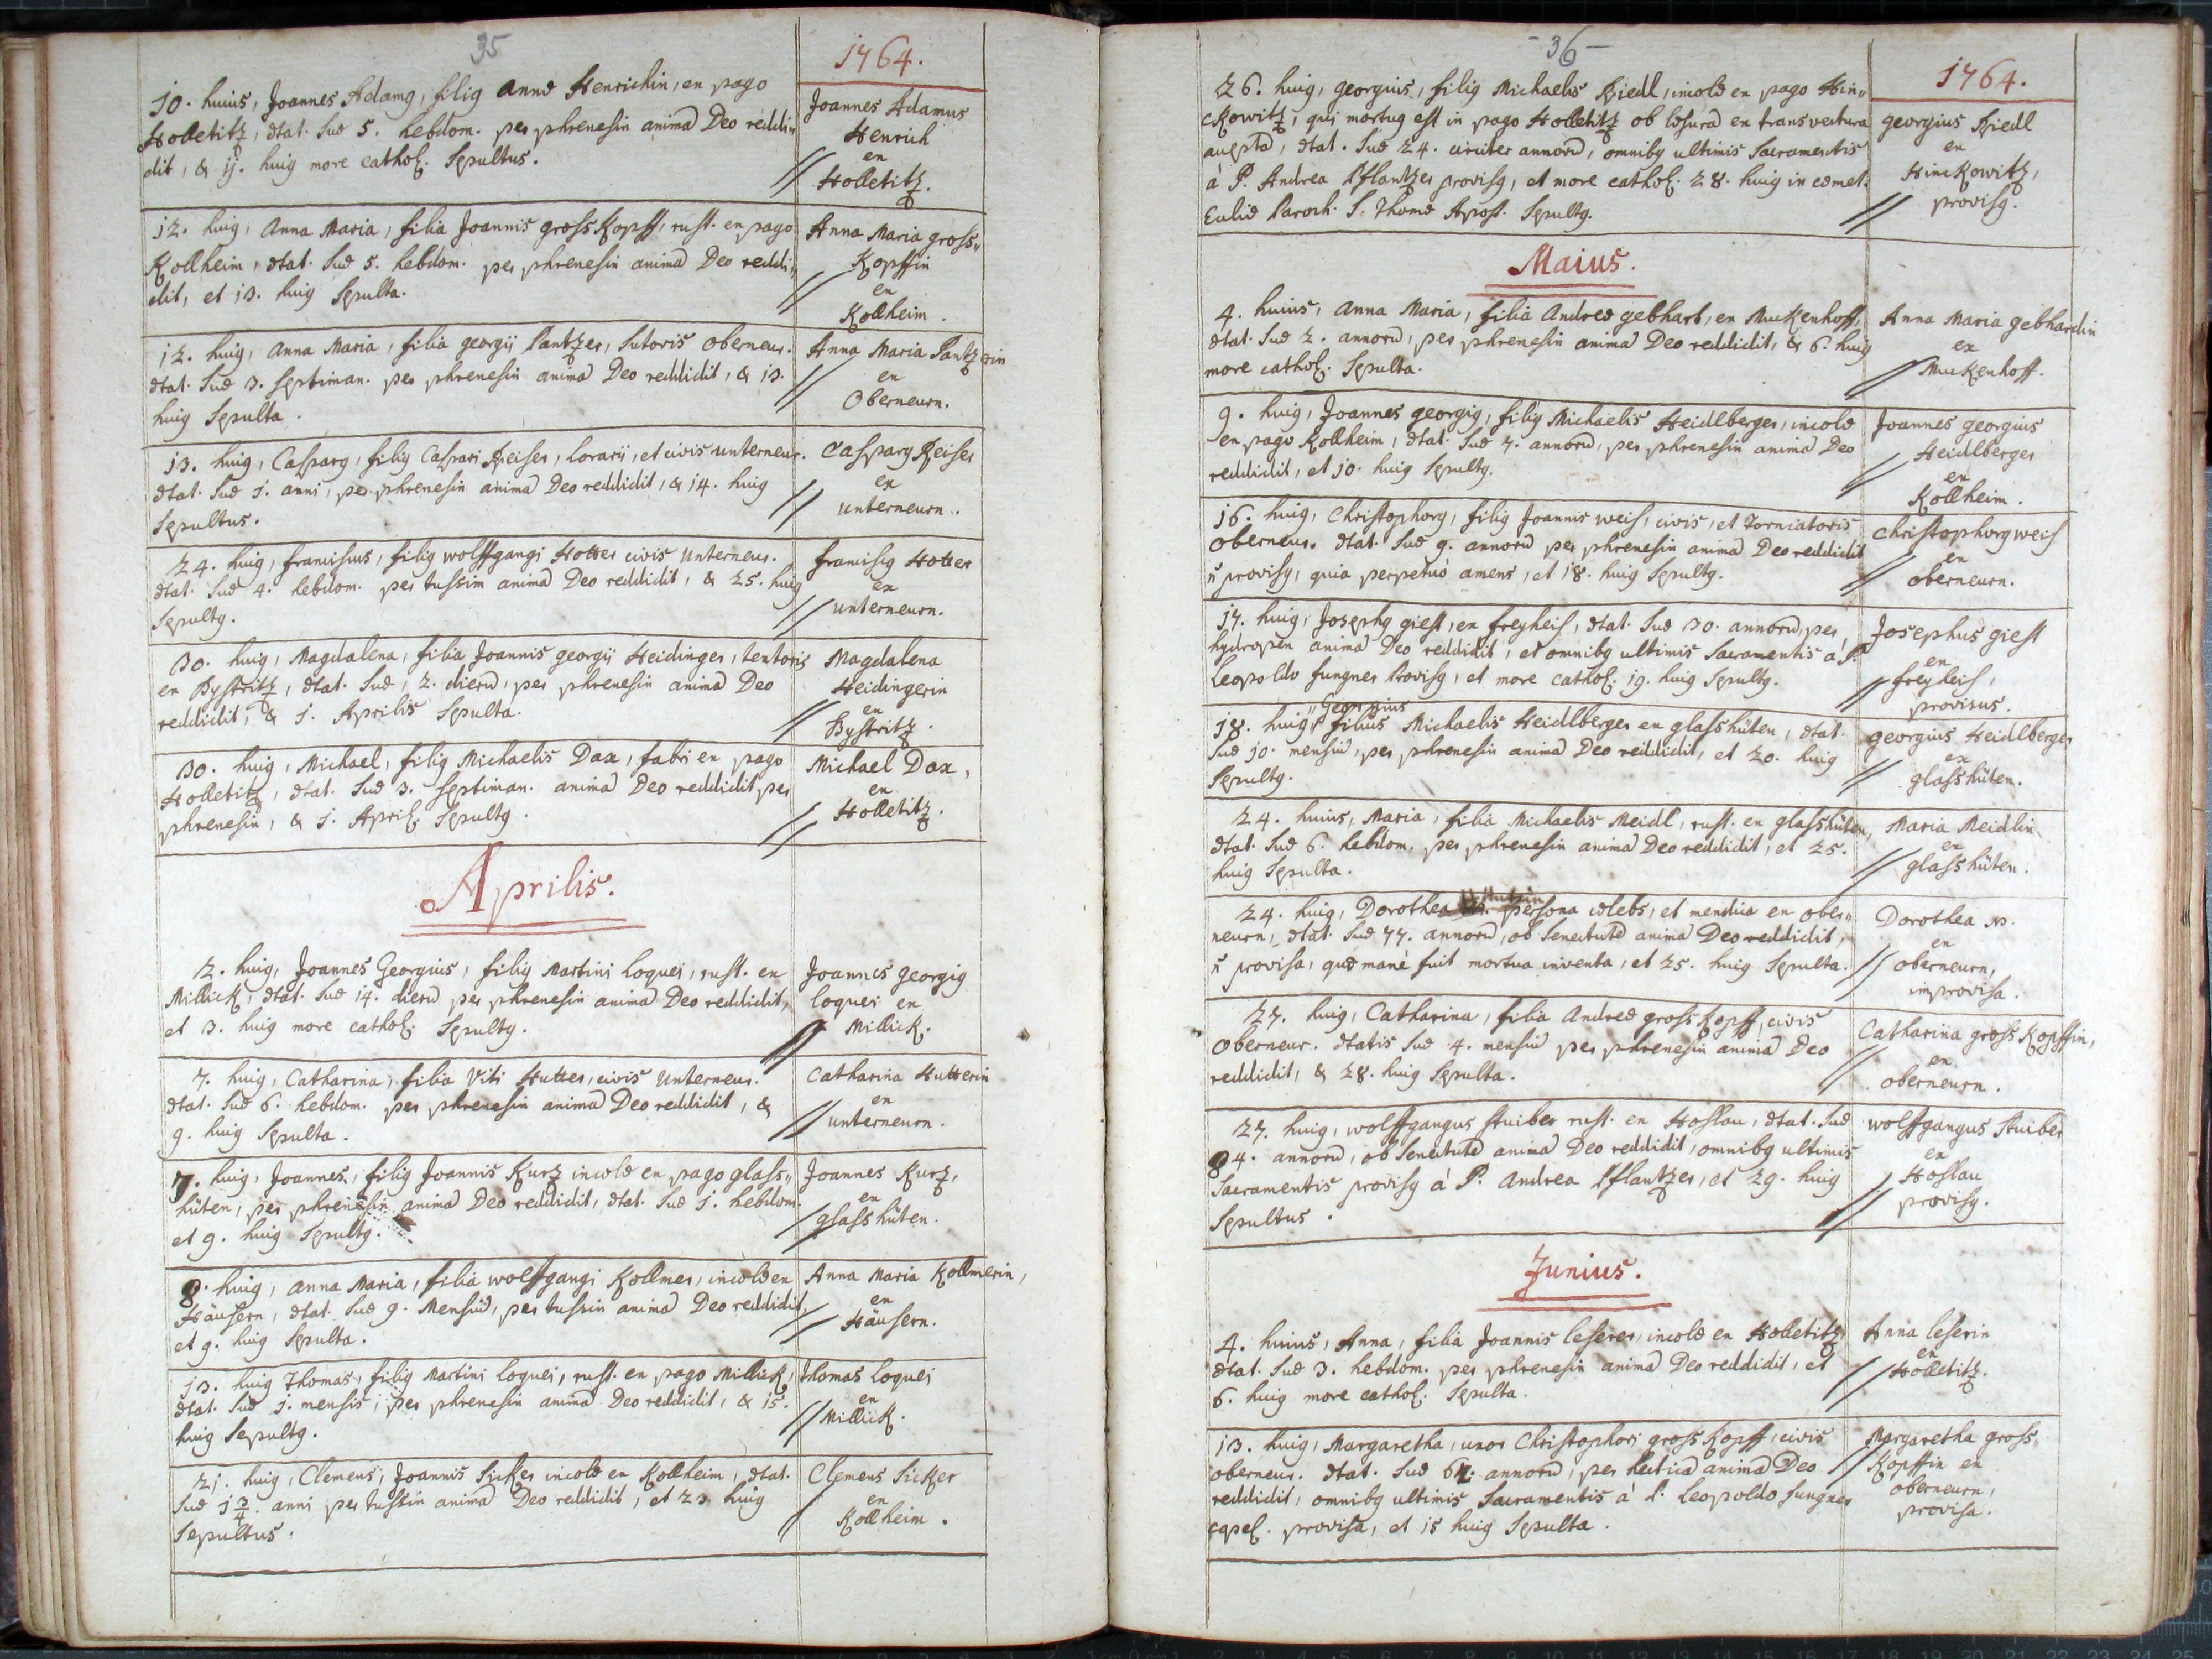 35
1764.
10. huius, Joannes Adamg, filig Annæ Henrichin, ex pago
Holletitz, ætat. suæ 5. hebdom. per phrenesin anima Deo reddi„
dit, & 11. huig more cathol. Sepultus.
Joannes Adamus
Henrich
ex
Holletitz.
12. huig, Anna Maria, filia Joannis grosskopff, rust. ex pago
Kollheim, ætat. suæ 5. hebdom. per phrenesin anima Deo reddi„
dit, et 13. huig Sepulta.
Anna Maria gross„
Kopffin
ex
Kollheim.
12. huig, Anna Maria, filia georgij Pantzer, Sutoris Oberneur.
ætat. suæ 3. septiman. per phrenesin anima Deo reddidit, & 13.
huig Sepulta.
Anna Maria Pantzerin
ex
Oberneurn.
13. huig, Casparg, filig Caspari Reiser, lorarii, et civis unterneur.
ætat. suæ 1. anni, per phrenesin anima Deo reddidit, & 14. huig
Sepultus.
Casparg Reiser
ex
unterneurn.
24. huig, franciscus, filig wolffgangi Hotter civis Unterneur.
ætat. suæ 4. hebdom. per tussim anima Deo reddidit, & 25. huig
Sepultg.
franciscg Hotter
ex
unterneurn.
30. huig, Magdalena, filia Joannis georgij Heidinger, textoris
ex Bystritz, ætat. suæ, 2. dierum, per phrenesin anima Deo
reddidit, & 1. Aprilis Sepulta.
Magdalena
Heidingerin
ex
Bystritz.
30. huig, Michael, filig Michaelis Dax, fabri ex pago
Holletitz, ætat. suæ 3. septiman. anima Deo reddidit per
phrenesin, & 1. April. Sepultg.
Michael Dax,
ex
Holletitz.
Aprilis.
2. huig, Joannes Georgius, filig Martini loquei, rust. ex
Millick, ætat. suæ 14. dierum per phrenesin anima Deo reddidit,
et 3. huig more cathol. Sepultg.
Joannes georgig
loquei ex
Millick.
7. huig, Catharina, filia Viti Hutter, civis Unterneur.
ætat. suæ 6. hebdom. per phrenesin anima Deo reddidit, &
9. huig Sepulta.
Catharina Hutterin
ex
unterneurn.
7. huig, Joannes, filig Joannis Kurz incolæ ex pago glass„
hüten, per phrenesin anima Deo reddidit, ætat. suæ 1. hebdom.
et 9. huig Sepultg.
Joannes Kurz,
ex
glasshüten.
8. huig, Anna Maria, filia wolffgangi Kollmer, incolæ ex
Häusern, ætat. suæ 9. Mensium, per tussin anima Deo reddidit,
et 9. huig Sepulta.
Anna Maria Kollmerin,
ex
Häusern.
13. huig Thomas, filig Martini loquei, rust. ex pago Millick,
ætat. suæ 1. mensis, per phrenesin anima Deo reddidit, & 15.
huig Sepultg.
Thomas loquei
ex
Millick.
21. huig, Clemens, Joannis Sicker incolæ ex Kollheim, ætat.
suæ 1 3/4. anni per tussin anima Deo reddidit, et 23 huig
Sepultus.
Clemens Sicker
ex
Kollheim.
- 36 -
1764.
26. huig, georgius, filig Michaelis Riedl, incolæ ex pago Hin„
ckowitz, qui mortug est in pago Holletitz ob læsura ex transvectura
accepta, ætat. suæ 24. circiter annorum, omnibg ultimis Sacramentis
à P. Andrea Pflantzer provisg, et more cathol. 28. huig in cœmet.
Eccliæ Paroch. S. Thomæ Apost. Sepultg.
georgius Riedl
ex
Hinckowitz,
provisg.
Maius.
4. huius, Anna Maria, filia Andreæ gebhart, ex Muckenhoff,
ætat. suæ 2. annorum, per phrenesin anima Deo reddidit, & 6. huig
more cathol. Sepulta.
Anna Maria gebhardin
ex
Muckenhoff.
9. huig, Joannes georgig, filig Michaelis Heidlberger, incolæ
ex pago Kollheim, ætat. suæ 7. annorum, per phrenesin anima Deo
reddidit, et 10. huig Sepultg.
Joannes georgius
Heidlberger
ex
Kollheim.
16. huig, Christophorg, filig Joannis weis, civis, et Torniatoris
Oberneur. ætat. suæ 9. annorum per phrenesin anima Deo reddidit
ñ provisg, quia perpetuò amens, et 18. huig Sepultg.
Christophorg weis
ex
oberneurn.
17. huig, Josephg giest, ex freyheis, ætat. suæ 30. annorum, per
hydropen anima Deo reddidit, et omnibg ultimis Sacramentis à P.
Leopoldo Jungner Provisg, et more cathol. 19. huig Sepultg.
Josephus giest
ex
freyheis,
provisus.
18. huig, Georgius filius Michaelis Heidlberger ex glasshüten, ætat.
suæ 10. mensium, per phrenesin anima Deo reddidit, et 20. huig
Sepultg.
georgius Heidlberger
ex
glasshüten.
24. huius, Maria, filia Michaelis Meidl, rust. ex glasshüten,
ætat. suæ 6. hebdom. per phrenesin anima Deo reddidit, et 25.
huig Sepulta.
Maria Meidlin
ex
glasshüten.
24. huig, Dorothea persona cœlebs, et mendica ex ober„
neurn, ætat. suæ 77. annorum, ob senectute anima Deo reddidit,
ñ provisa, quæ manè fuit mortua inventa, et 25. huig Sepulta.
Dorothea N.
ex
oberneurn,
improvisa.
27. huig, Catharina, filia Andreæ grosskopff, civis
Oberneur. ætatis suæ 4. mensium per phrenesin anima Deo
reddidit, & 28. huig Sepulta.
Catharina grosskopffin,
ex
oberneurn.
27. huig, wolffgangus Stuiber rust. ex Hoslau, ætat. suæ
84. annorum, ob senectute anima Deo reddidit, omnibg ultimis
Sacramentis provisg à P. Andrea Pflantzer, et 29. huig
Sepultus.
wolffgangus Stuiber
ex
Hoslau
provisg.
Junius.
4. huius, Anna, filia Joannis leserer, incolæ ex Holletitz,
ætat. suæ 3. hebdom. per phrenesin anima Deo reddidit, et
6. huig more cathol. Sepulta.
Anna leserin
ex
Holletitz.
13. huig, Margaretha, uxor Christophori grosskopff, civis
oberneur. ætat. suæ 62. annorum, per hectica anima Deo
reddidit, omnibg ultimis Sacramentis à P. Leopoldo Jungner
capel. provisa, et 15 huig Sepulta.
Margaretha gross„
Kopffin ex
oberneurn,
provisa.